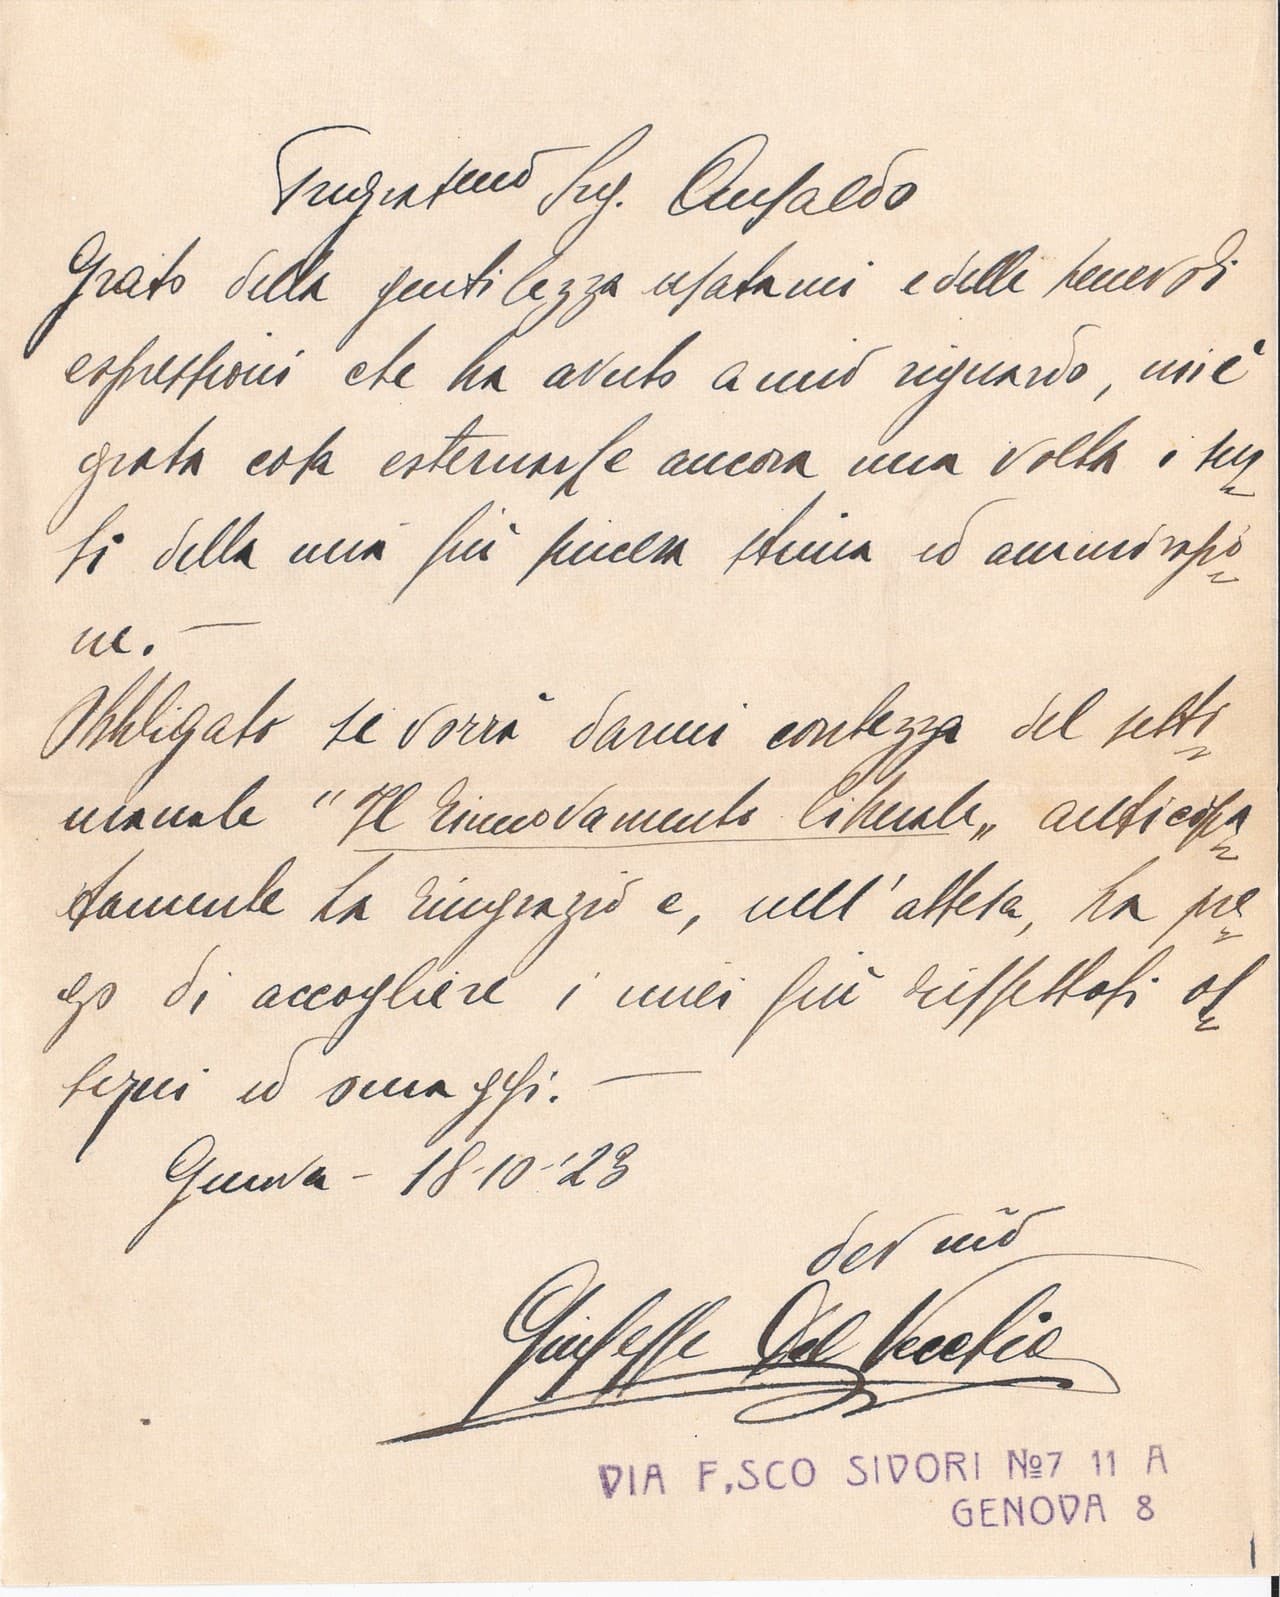 Pregiatmo Sig. Ansaldo
Grato della gentilezza usatami e delle benevoli
espressioni che ha avuto a mio riguardo, mi è
grata cosa esternarle ancora una volta i sen
si della mia più sincera stima ed ammirazio
ne. —
Obbligato se vorrà darmi contezza del setti
manale "Il Rinnovamento liberale„ anticipa
tamente La ringrazio e, nell'attesa, La pre
go di accogliere i miei più rispettosi os
sequi ed omaggi. —
Genova - 18-10-'23
dev mo
Giuseppe Del Vecchio
VIA F.SCO SIVORI №7 11 A
GENOVA 8